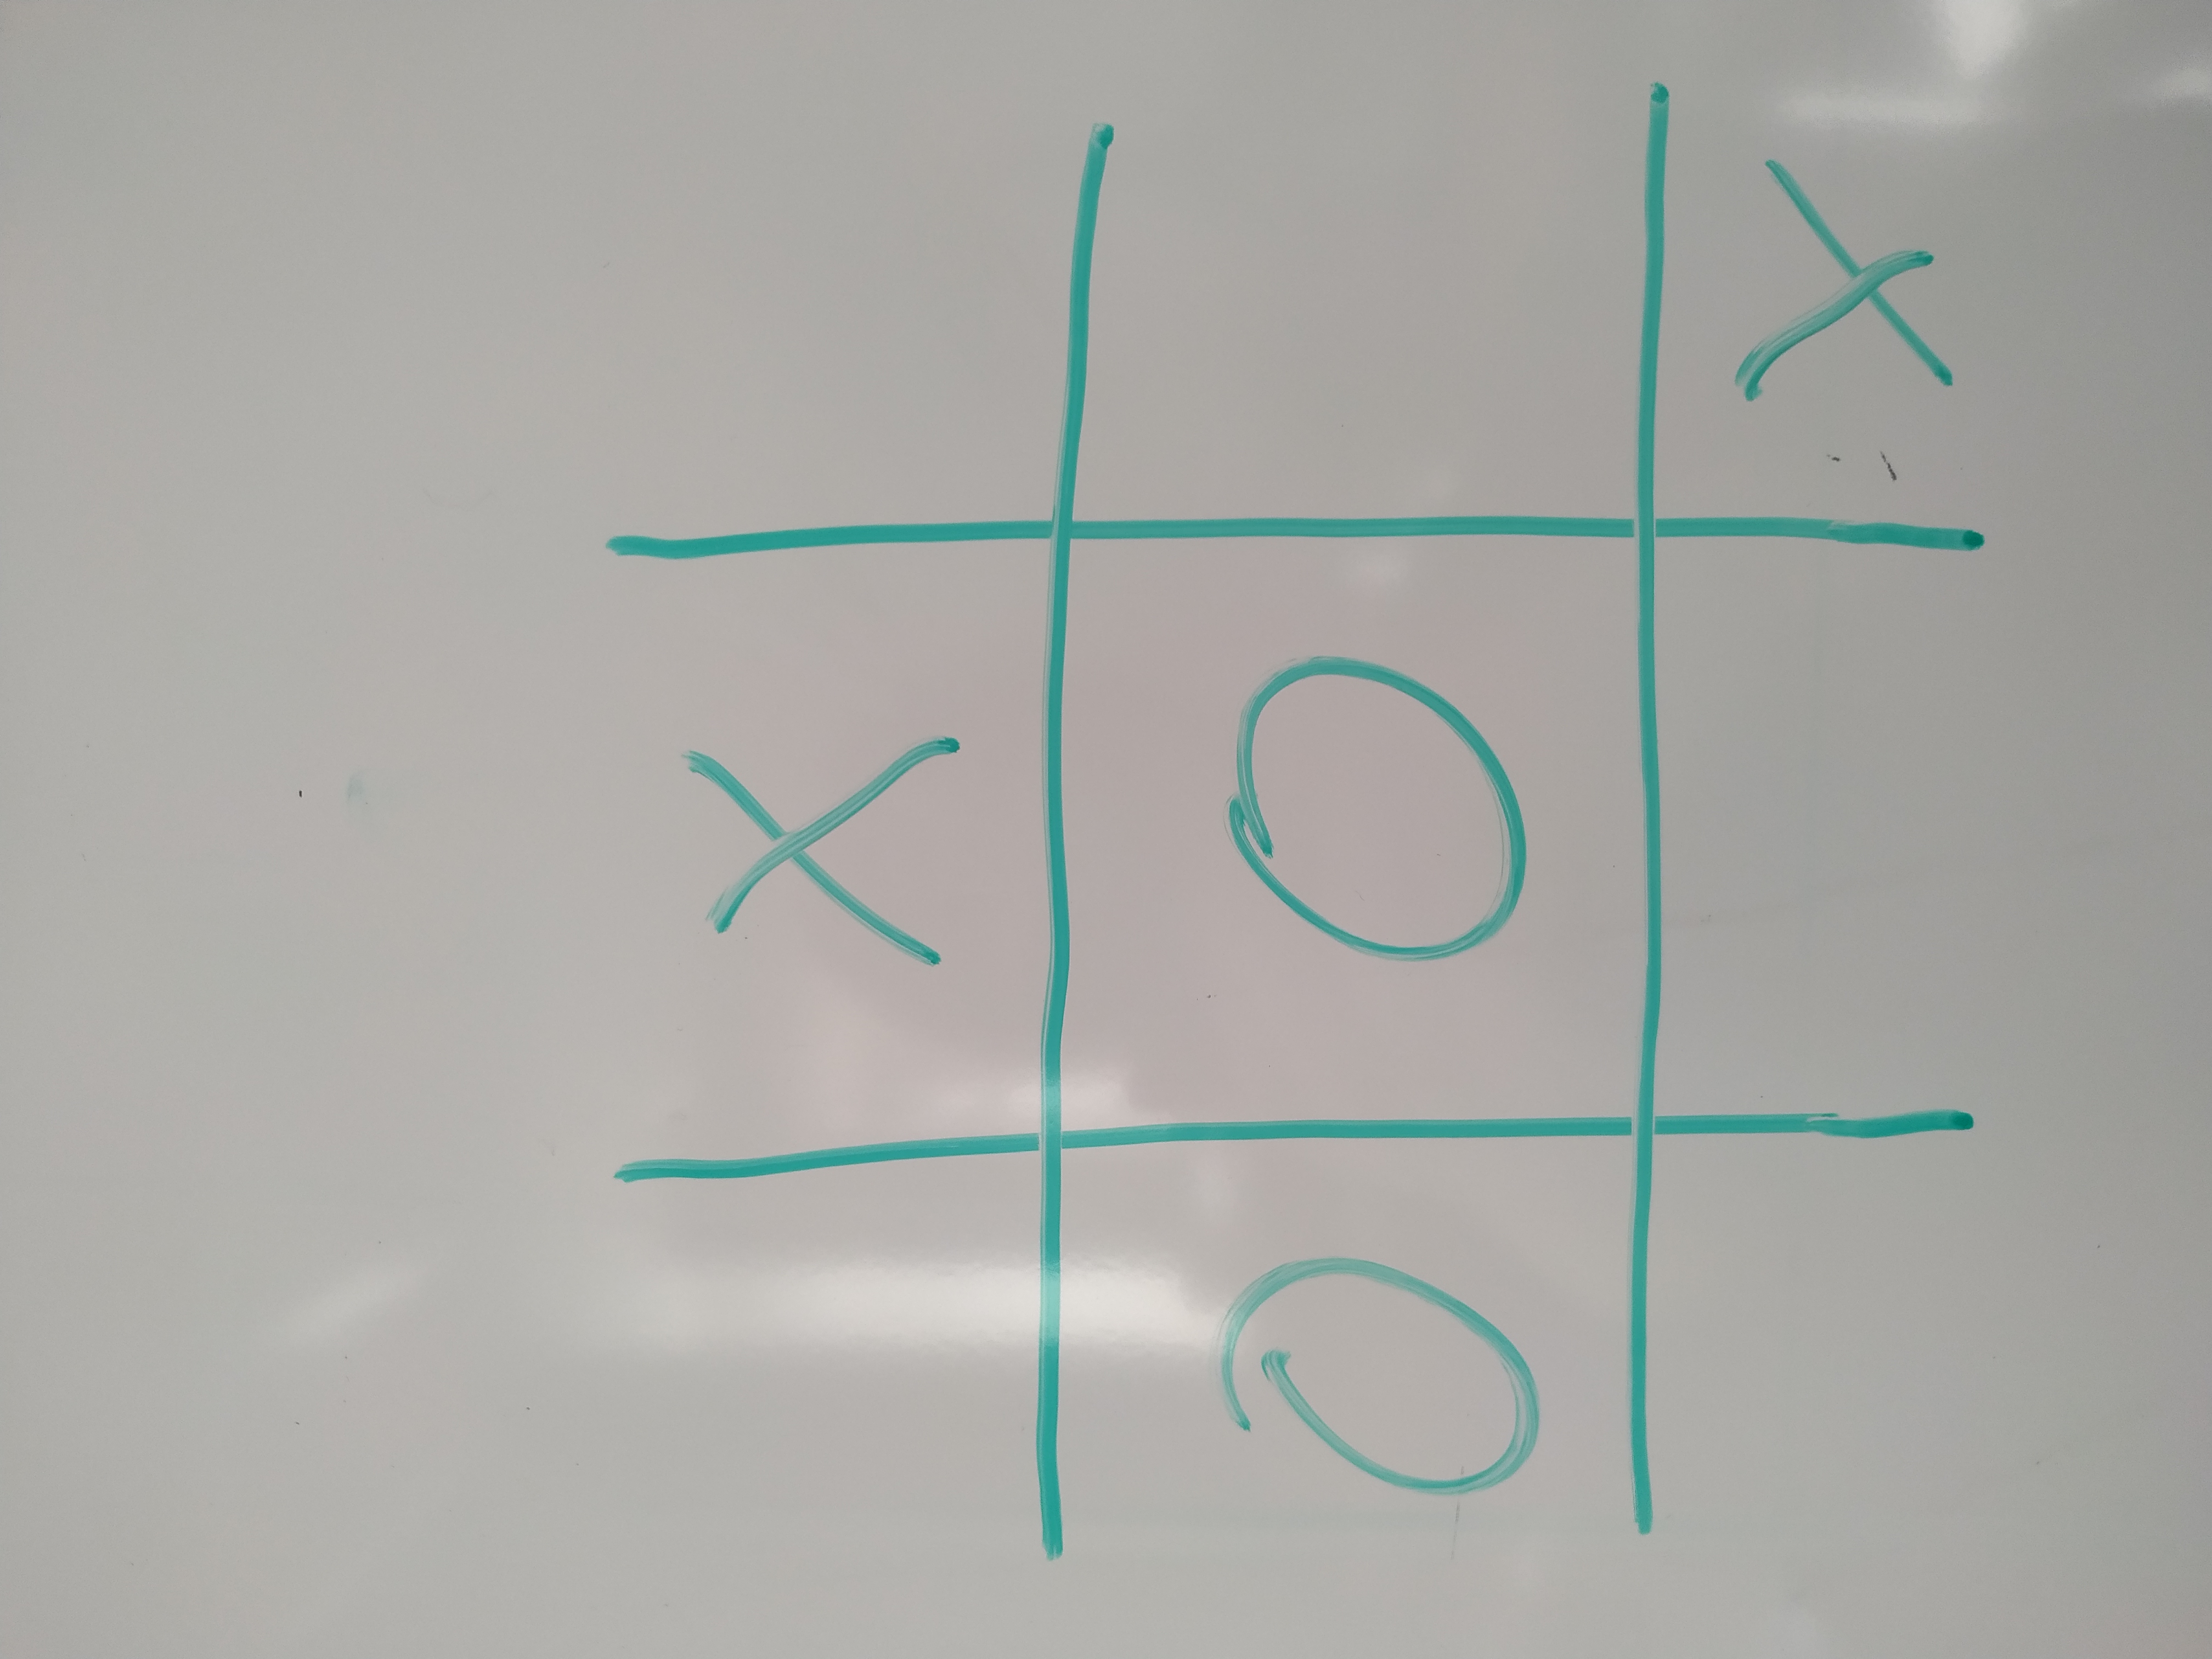 X
O O
X